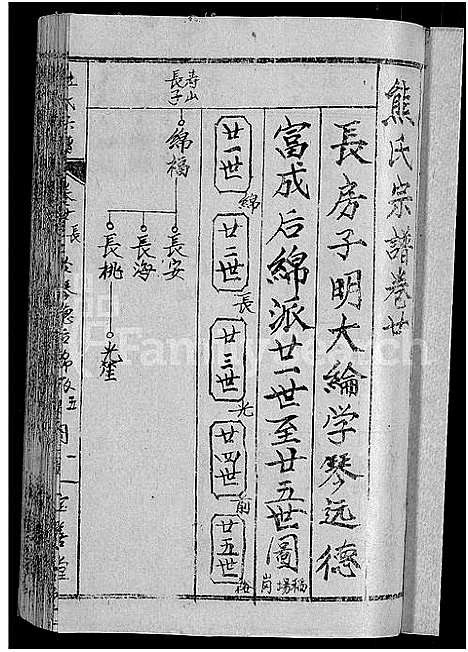 熊氏宗譜卷廿
長房子明大綸学琴远德
富成后綿派廿一世至廿五世圖
稲場岗
廿一世
綿
廿二世
長
廿三世
光
廿四世
前
廿五世
裕
寿山
長子
綿福
長安
長海
長桃
光奎